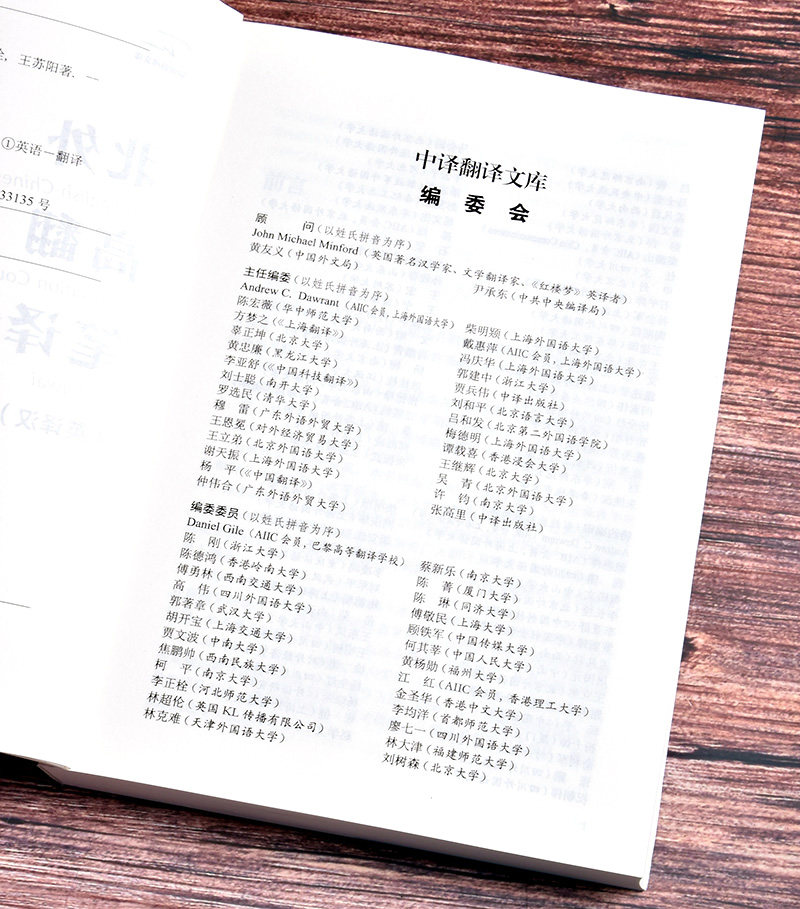 ，王苏阳著. —
①英语－翻译
33135 号
中译翻译文库
编 委 会
顾 问（以姓氏拼音为序）
John Michael Minford（英国著名汉学家、文学翻译家、《红楼梦》英译者）
黄友义（中国外文局） 尹承东（中共中央编译局）
主任编委（以姓氏拼音为序）
Andrew C. Dawrant（AIIC会员，上海外国语大学） 柴明颎（上海外国语大学）
陈宏薇（华中师范大学） 戴惠萍（AIIC 会员，上海外国语大学）
方梦之（《上海翻译》） 冯庆华（上海外国语大学）
辜正坤（北京大学） 郭建中（浙江大学）
黄忠廉（黑龙江大学） 贾兵伟（中译出版社）
李亚舒（《中国科技翻译》） 刘和平（北京语言大学）
刘士聪（南开大学） 吕和发（北京第二外国语学院）
罗选民（清华大学） 梅德明（上海外国语大学）
穆 雷（广东外语外贸大学） 谭载喜（香港浸会大学）
王恩冕（对外经济贸易大学） 王继辉（北京大学）
王立弟（北京外国语大学） 吴 青（北京外国语大学）
谢天振（上海外国语大学） 许 钧（南京大学）
杨 平（《中国翻译》） 张高里（中译出版社）
仲伟合（广东外语外贸大学）
编委委员（以姓氏拼音为序）
Daniel Gile（AIIC 会员，巴黎高等翻译学校） 蔡新乐（南京大学）
陈 刚（浙江大学） 陈 菁（厦门大学）
陈德鸿（香港岭南大学） 陈 琳（同济大学）
傅勇林（西南交通大学） 傅敬民（上海大学）
高 伟（四川外国语大学） 顾铁军（中国传媒大学）
郭著章（武汉大学） 何其莘（中国人民大学）
胡开宝（上海交通大学） 黄杨勋（福州大学）
贾文波（中南大学） 江 红（AIIC 会员，香港理工大学）
焦鹏帅（西南民族大学） 金圣华（香港中文大学）
柯 平（南京大学） 李均洋（首都师范大学）
李正栓（河北师范大学） 廖七一（四川外国语大学）
林超伦（英国 KL 传播有限公司） 林大津（福建师范大学）
林克难（天津外国语大学） 刘树森（北京大学）